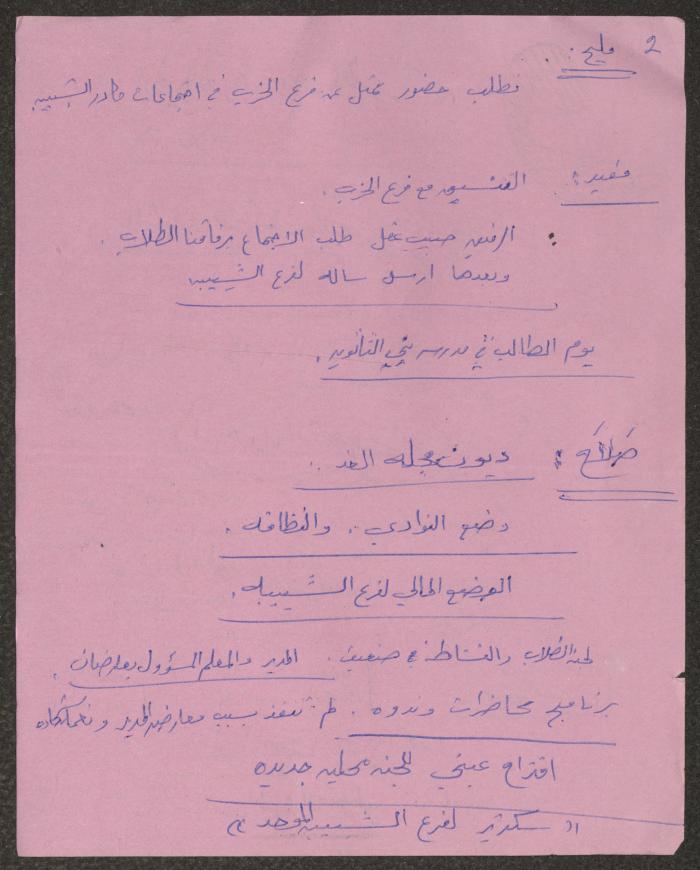 2
مليح:
نطلب حضور ممثل عن فرع الحزب في اجتماعات كادر الشبيبه
مفيد: التنسيق مع فرع الحزب.
: الرفيق حبيب طلب الاجتماع برفاقنا الطلاب.
وبعدها ارسل رساله لفرع الشبيبه
يوم الطالب في مدرسه يني الثانويه.
صلاح: ديون مجله الغد..
وضع النوادي.. والنظافه.
الوضع المالي لفرع الشبيبه.
لجنة الطلاب والنشاطه في المدير والمعلم المسؤول يعارضان.
برنامج محاضرات وندوه. لم تنفذ بسبب معارضة المدير
اقتراح عيني للجنه محليه جديده
"سكرتير لفرع الشبيبه الموحد"